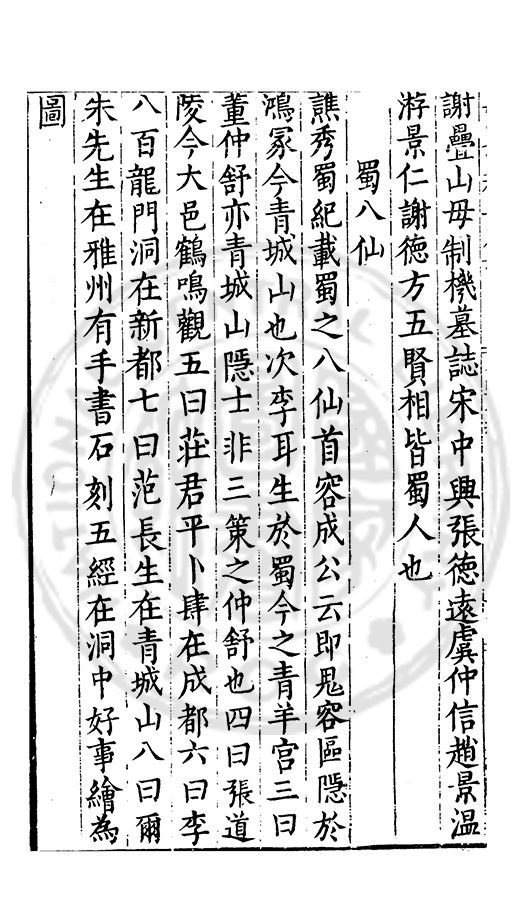 謝疊山毋制機墓誌宋中興張德遠虞仲信趙景溫
游景仁謝德方五賢相皆蜀人也
蜀八仙
譙秀蜀紀載蜀之八仙首容成公云即鬼容區隱於
鴻冡今青城山也次李耳生於蜀今之青羊宮三曰
董仲舒亦青城山隱士非三策之仲舒也四曰張道
陵今大邑鶴鳴觀五曰莊君平卜肆在成都六曰李
八百龍門洞在新都七曰范長生在青城山八曰爾
朱先生在雅州有手書石刻五經在洞中好事繪為
圖